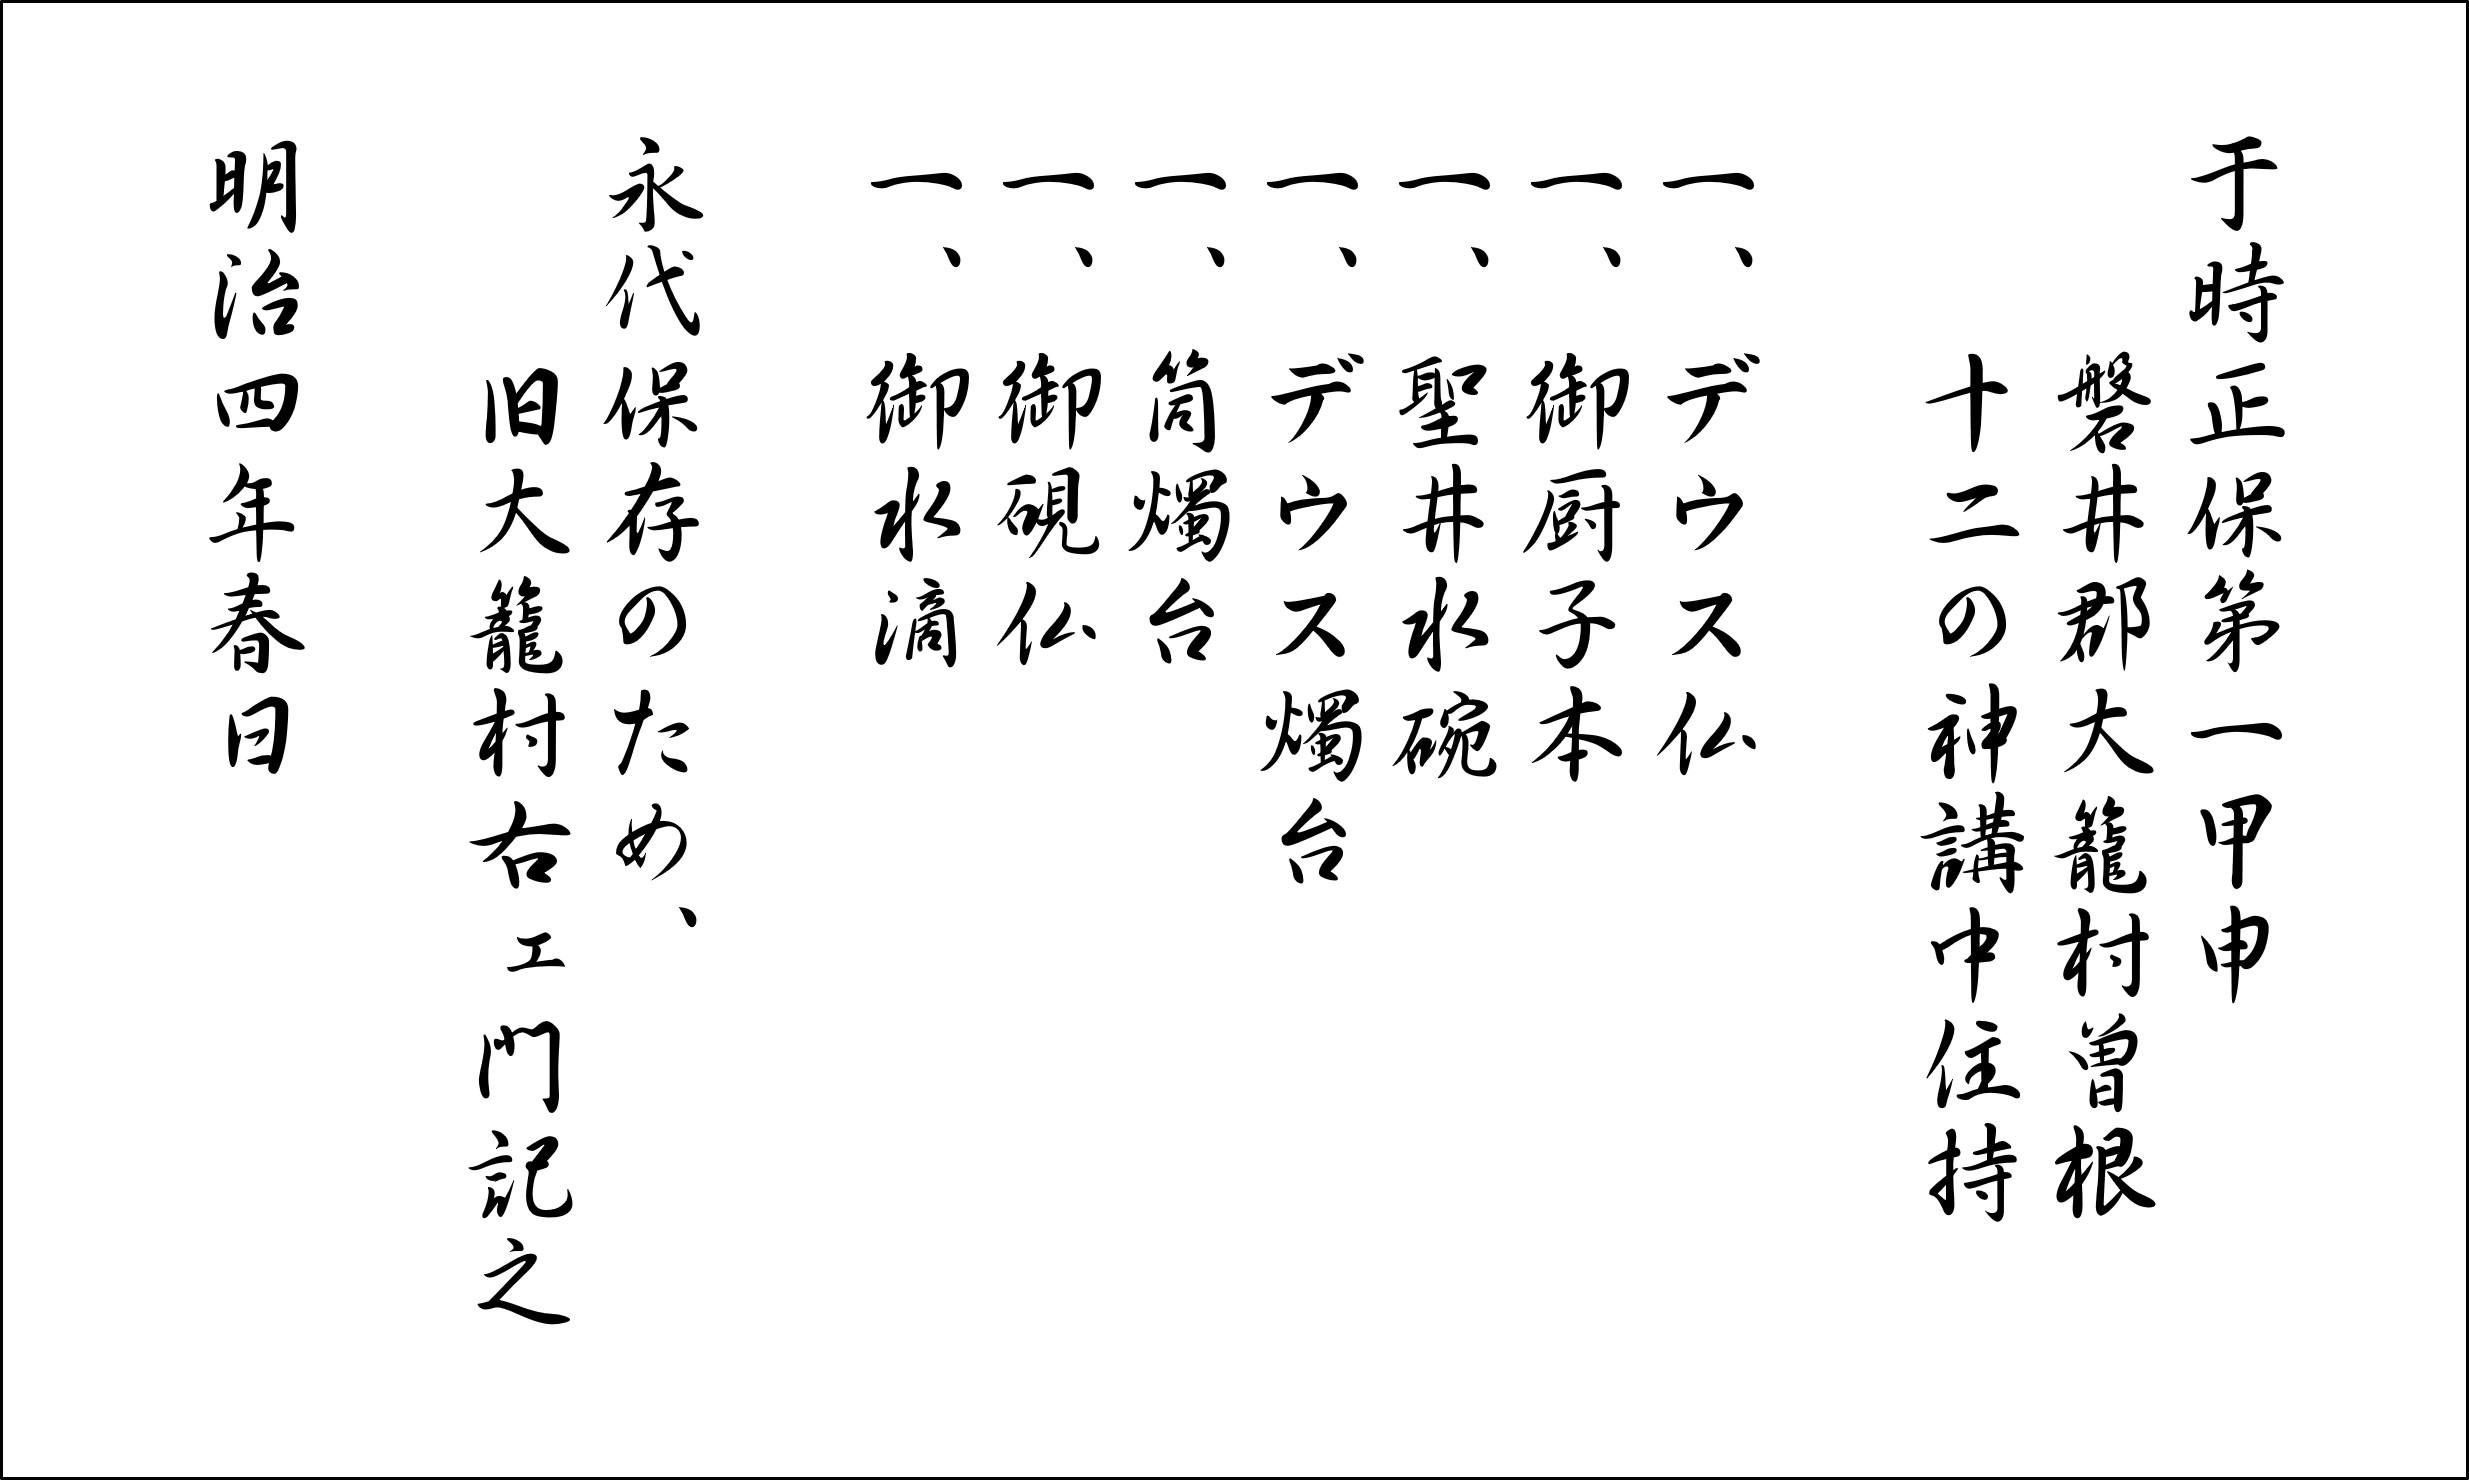 于時正保第一甲申
磐井郡大籠村曽根
十二の神講中住持
一、デウス仏
一、御厨子本
一、聖井水碗
一、デウス燭台
一、筒燭台
一、御硯仏
一、御水滴
永代保存のため、
旧大籠村右エ門記之
明治四年春日